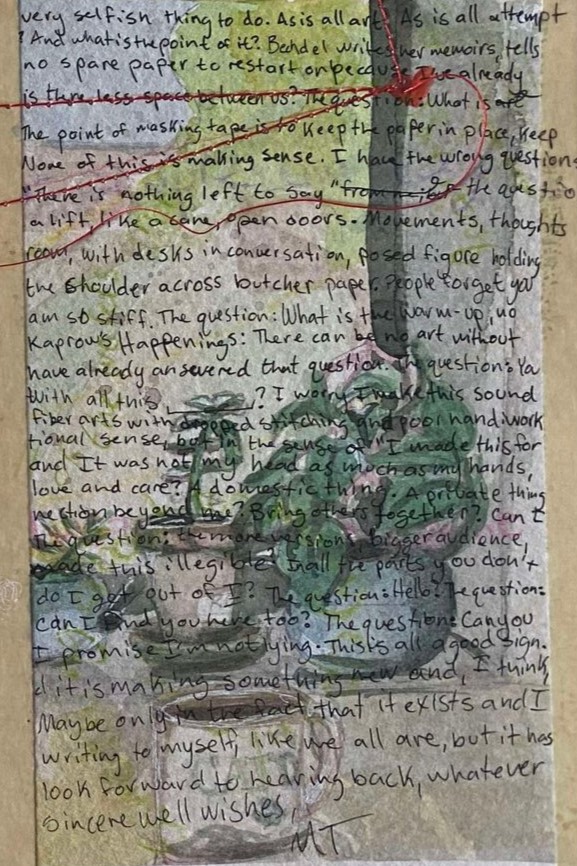 very selfish thing to do. As is all art. As is all attempt
? And what is the point of it? Bechdel writes her memoirs, tells
no spare paper to restart on because I've already
is there less space between us? The question: What is art
The point of masking tape is to keep the paper in place, keep
None of this is making sense. I have the wrong questions
"There is nothing left to say" the questio
a lift, like a cane, open doors. Movements, thoughts
room, with desks in conversation, posed figure holding
the shoulder across butcher paper. People forget you
am so stiff. The question: What is the warm-up, no
Kaprow's Happenings: There can be no art without
have already answered that question. The question: You
with all this ? I worry I make this sound
fiber arts with dropped stitching and poor handiwork
tional sense, but in the sense of "I made this for
and It was not my head as much as my hands,
love and care? A domestic thing. A private thing
nection beyond me? Bring others together? Can t
The question: the more versions, bigger audience,
made this illegible? In all the parts you don't
do I get out of I? The question: Hello? The question:
can I find you here too? The question: Can you
I promise I'm not lying. This is all a good sign.
d it is making something new and, I think,
Maybe only in the fact that it exists and I
writing to myself, like we all are, but it has
look forward to hearing back, whatever
sincere well wishes,
MT